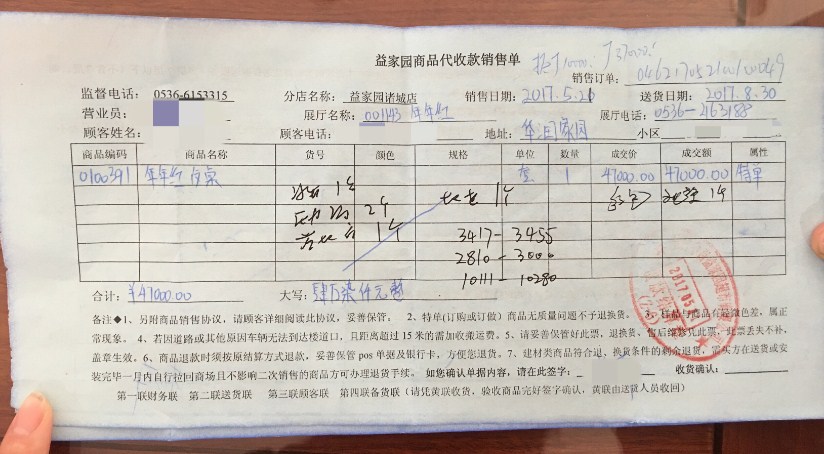 益家园商品代收款销售单
销售订单: 0462170521001100049
监督电话: 0536-6153315 分店名称: 益家园诸城店 销售日期: 2017.5.21 送货日期: 2017.8.30
营业员: 展厅名称: 001143 年年红 展厅电话: 0536-2163188
顾客姓名: 顾客电话: 地址: 小区
商品编码 商品名称 货号 颜色 规格 单位 数量 成交价 成交额 属性
0100391 年年红 套 1 47000.00 47000.00 特单
3417-3455
2810-3000
10111-10280
合计: ¥47000.00 大写: 肆万柒仟元整
备注◆1、另附商品销售协议，请顾客详细阅读此协议，妥善保管。 2、特单(订购或订做）商品无质量问题不予退换货。 3、样品与商品有轻微色差，属正
常现象。 4、若因道路或其他原因车辆无法到达楼道口，且距离超过15米的需加收搬运费。5、请妥善保管好此票，退换货、售后维修凭此票，此票丢失不补，
盖章生效。6、商品退款时须按原结算方式退款，妥善保管pos单据及银行卡，方便您退货。7、建材类商品符合退、换货条件的剩余退货，需买方在送货或安
装完毕一月内自行拉回商场且不影响二次销售的商品方可办理退货手续。 如您确认单据内容，请在此签字: 收货确认:
第一联财务联 第二联送货联 第三联顾客联 第四联备货联（请凭黄联收货，验收商品完好签字确认，黄联由送货人员收回）